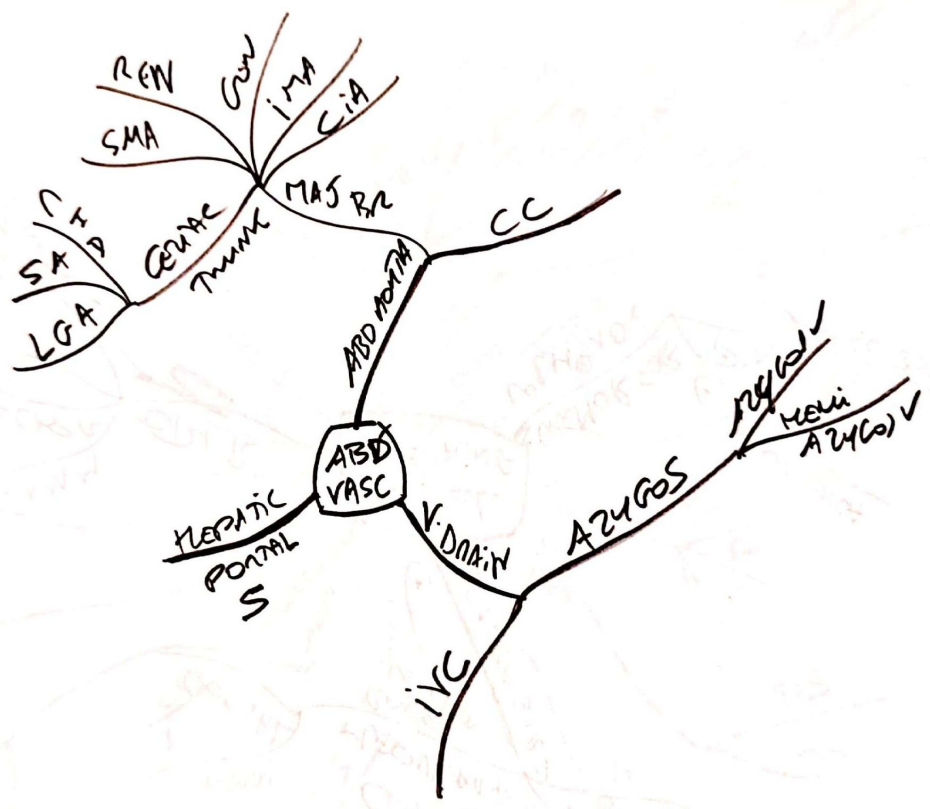 REN
GON
IMA
CIA
SMA
MAJ BR
CC
CELIAC
TRUNK
SA
LGA
ABD AORTA
ABD
VASC
HEPATIC
PORTAL
S
V. DRAIN
AZYGOS
AZYGOS V
HEMI
AZYGOS V
IVC